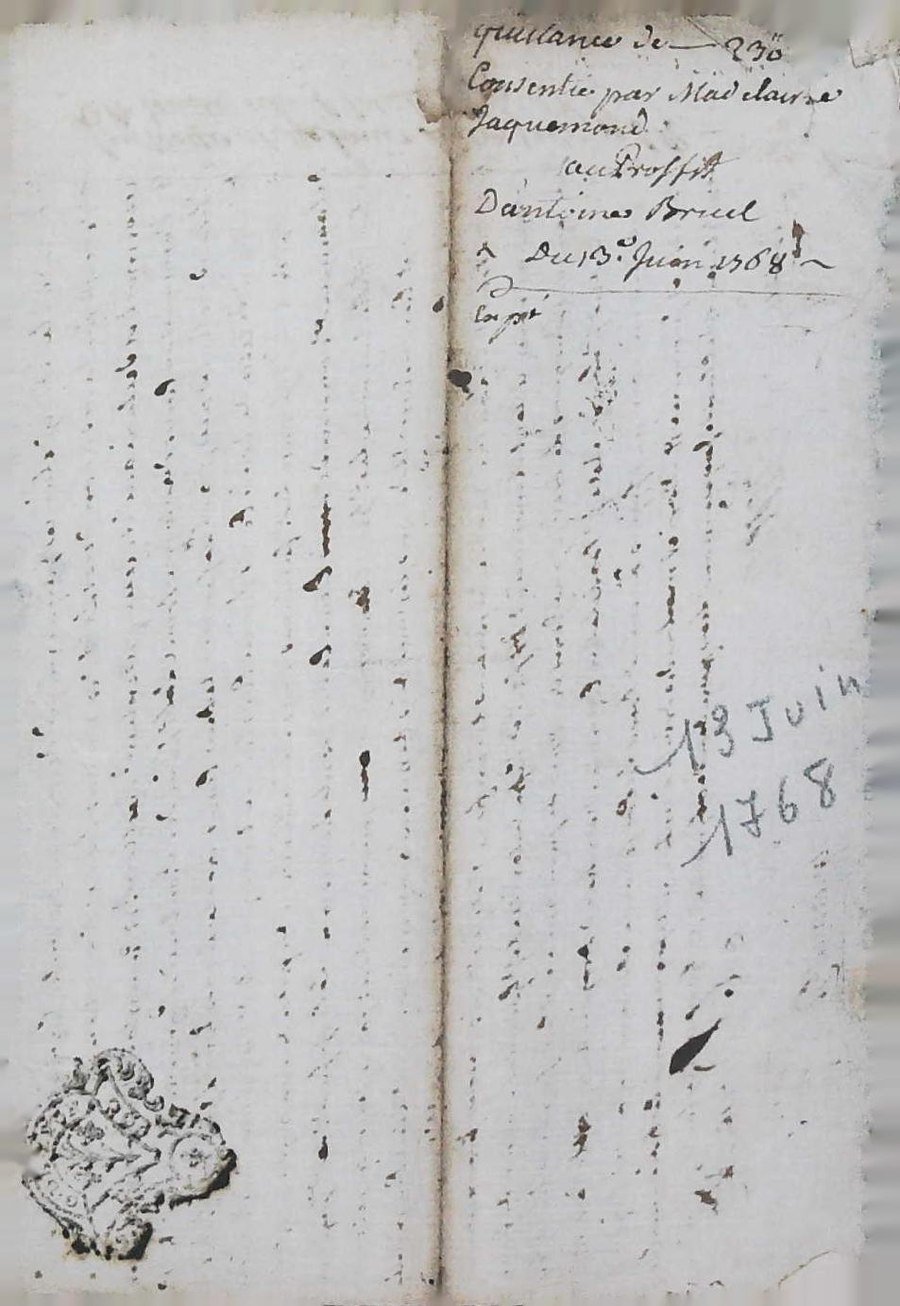 quistance de — 230
Consentie par Madelaine
Jaquemond
au Proffit
Dantoine Bruel
Du 13e Juin 1768
13 Juin
1768